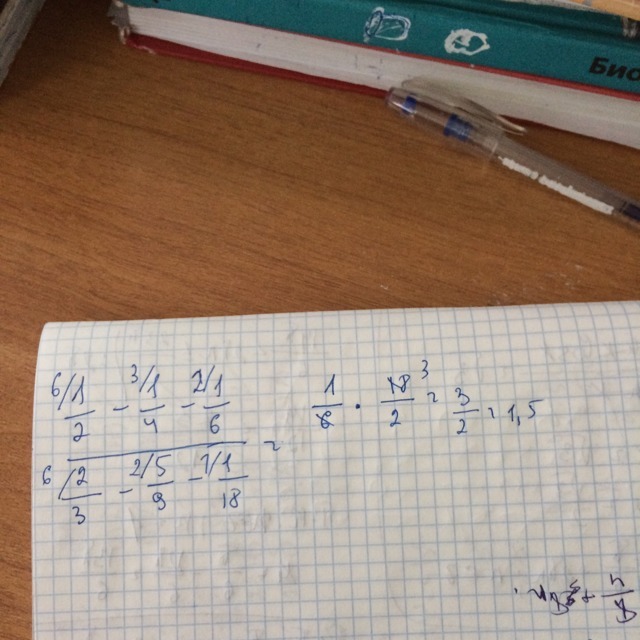 Био
6/1/2 - 3/1/4 - 2/1/6
6/2/3 - 2/5/9 - 1/1/18
= 1/6 · 18/2 3 = 3/2 = 1,5